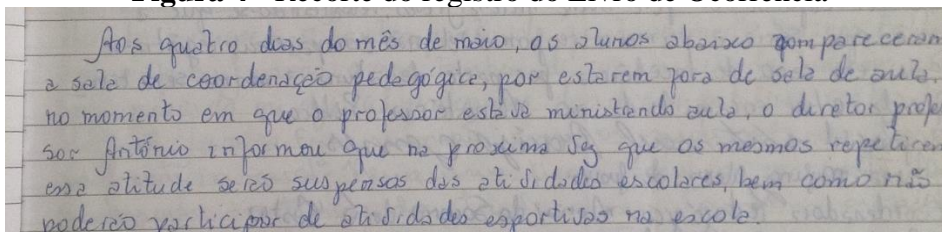 Figura 4 - Recorte do registro do Livro de Ocorrência
Aos quatro dias do mês de maio, os alunos abaixo compareceram
a sala de coordenação pedagógica, por estarem fora de sala de aula,
no momento em que o professor estava ministrando aula, o diretor profes
sor Antônio informou que na proxima vez que os mesmos repetirem
essa atitude serão suspensos das atividades escolares, bem como não
poderão participar de atividades esportivas na escola.